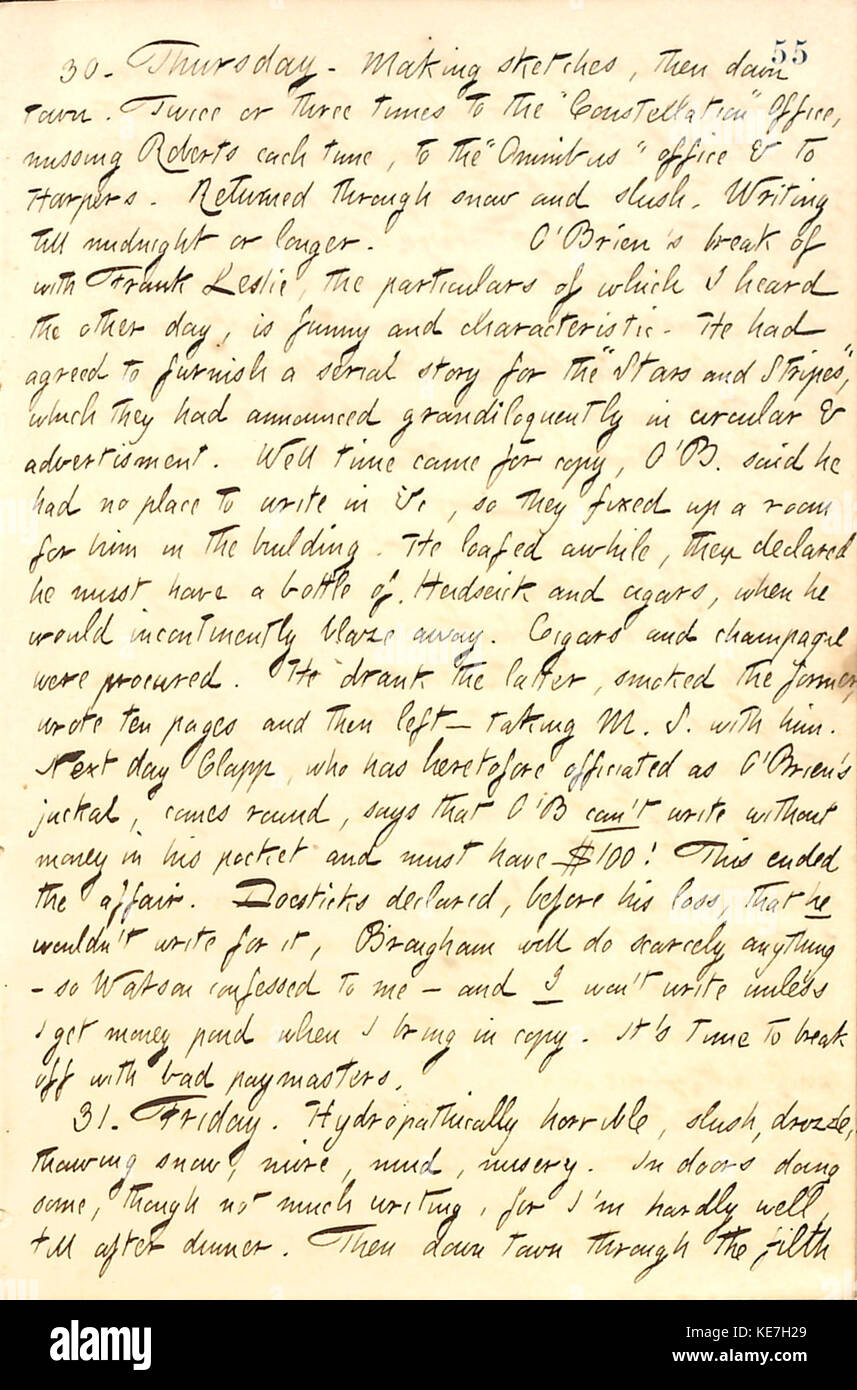 55
30. Thursday. Making sketches, then down
town. Twice or three times to the "Constellation" Office,
missing Roberts each time, to the "Omnibus" office & to
Harpers. Returned through snow and slush. Writing
till midnight or longer. O'Brien's break of
with Frank Leslie, the particulars of which I heard
the other day, is funny and characteristic. He had
agreed to furnish a serial story for the "Stars and Stripes",
which they had announced grandiloquently in circular &
advertisment. Well time came for copy, O'B. said he
had no place to write in &c, so they fixed up a room
for him in the building. He loafed awhile, then declared
he musst have a bottle of Heidseick and cigars, when he
would incontinently blaze away. Cigars and champagne
were procured. He drank the latter, smoked the former,
wrote ten pages and then left — taking M. S. with him.
Next day Clapp, who has heretofore officiated as O'Brien's
jackal, comes round, says that O'B can't write without
money in his pocket and must have $100! This ended
the affair. Doesticks declared, before his loss, that he
wouldn't write for it, Brougham will do scarcely anything
- so Watson confessed to me - and I won't write unless
I get money paid when I bring in copy. It's time to break
off with bad paymasters.
31. Friday. Hydropathically horrible, slush, drizzle,
thawing snow, mire, mud, misery. In doors doing
some, though not much writing, for I'm hardly well,
till after dinner. Then down town through the filth
alamy
Image ID: KE7H29
www.alamy.com